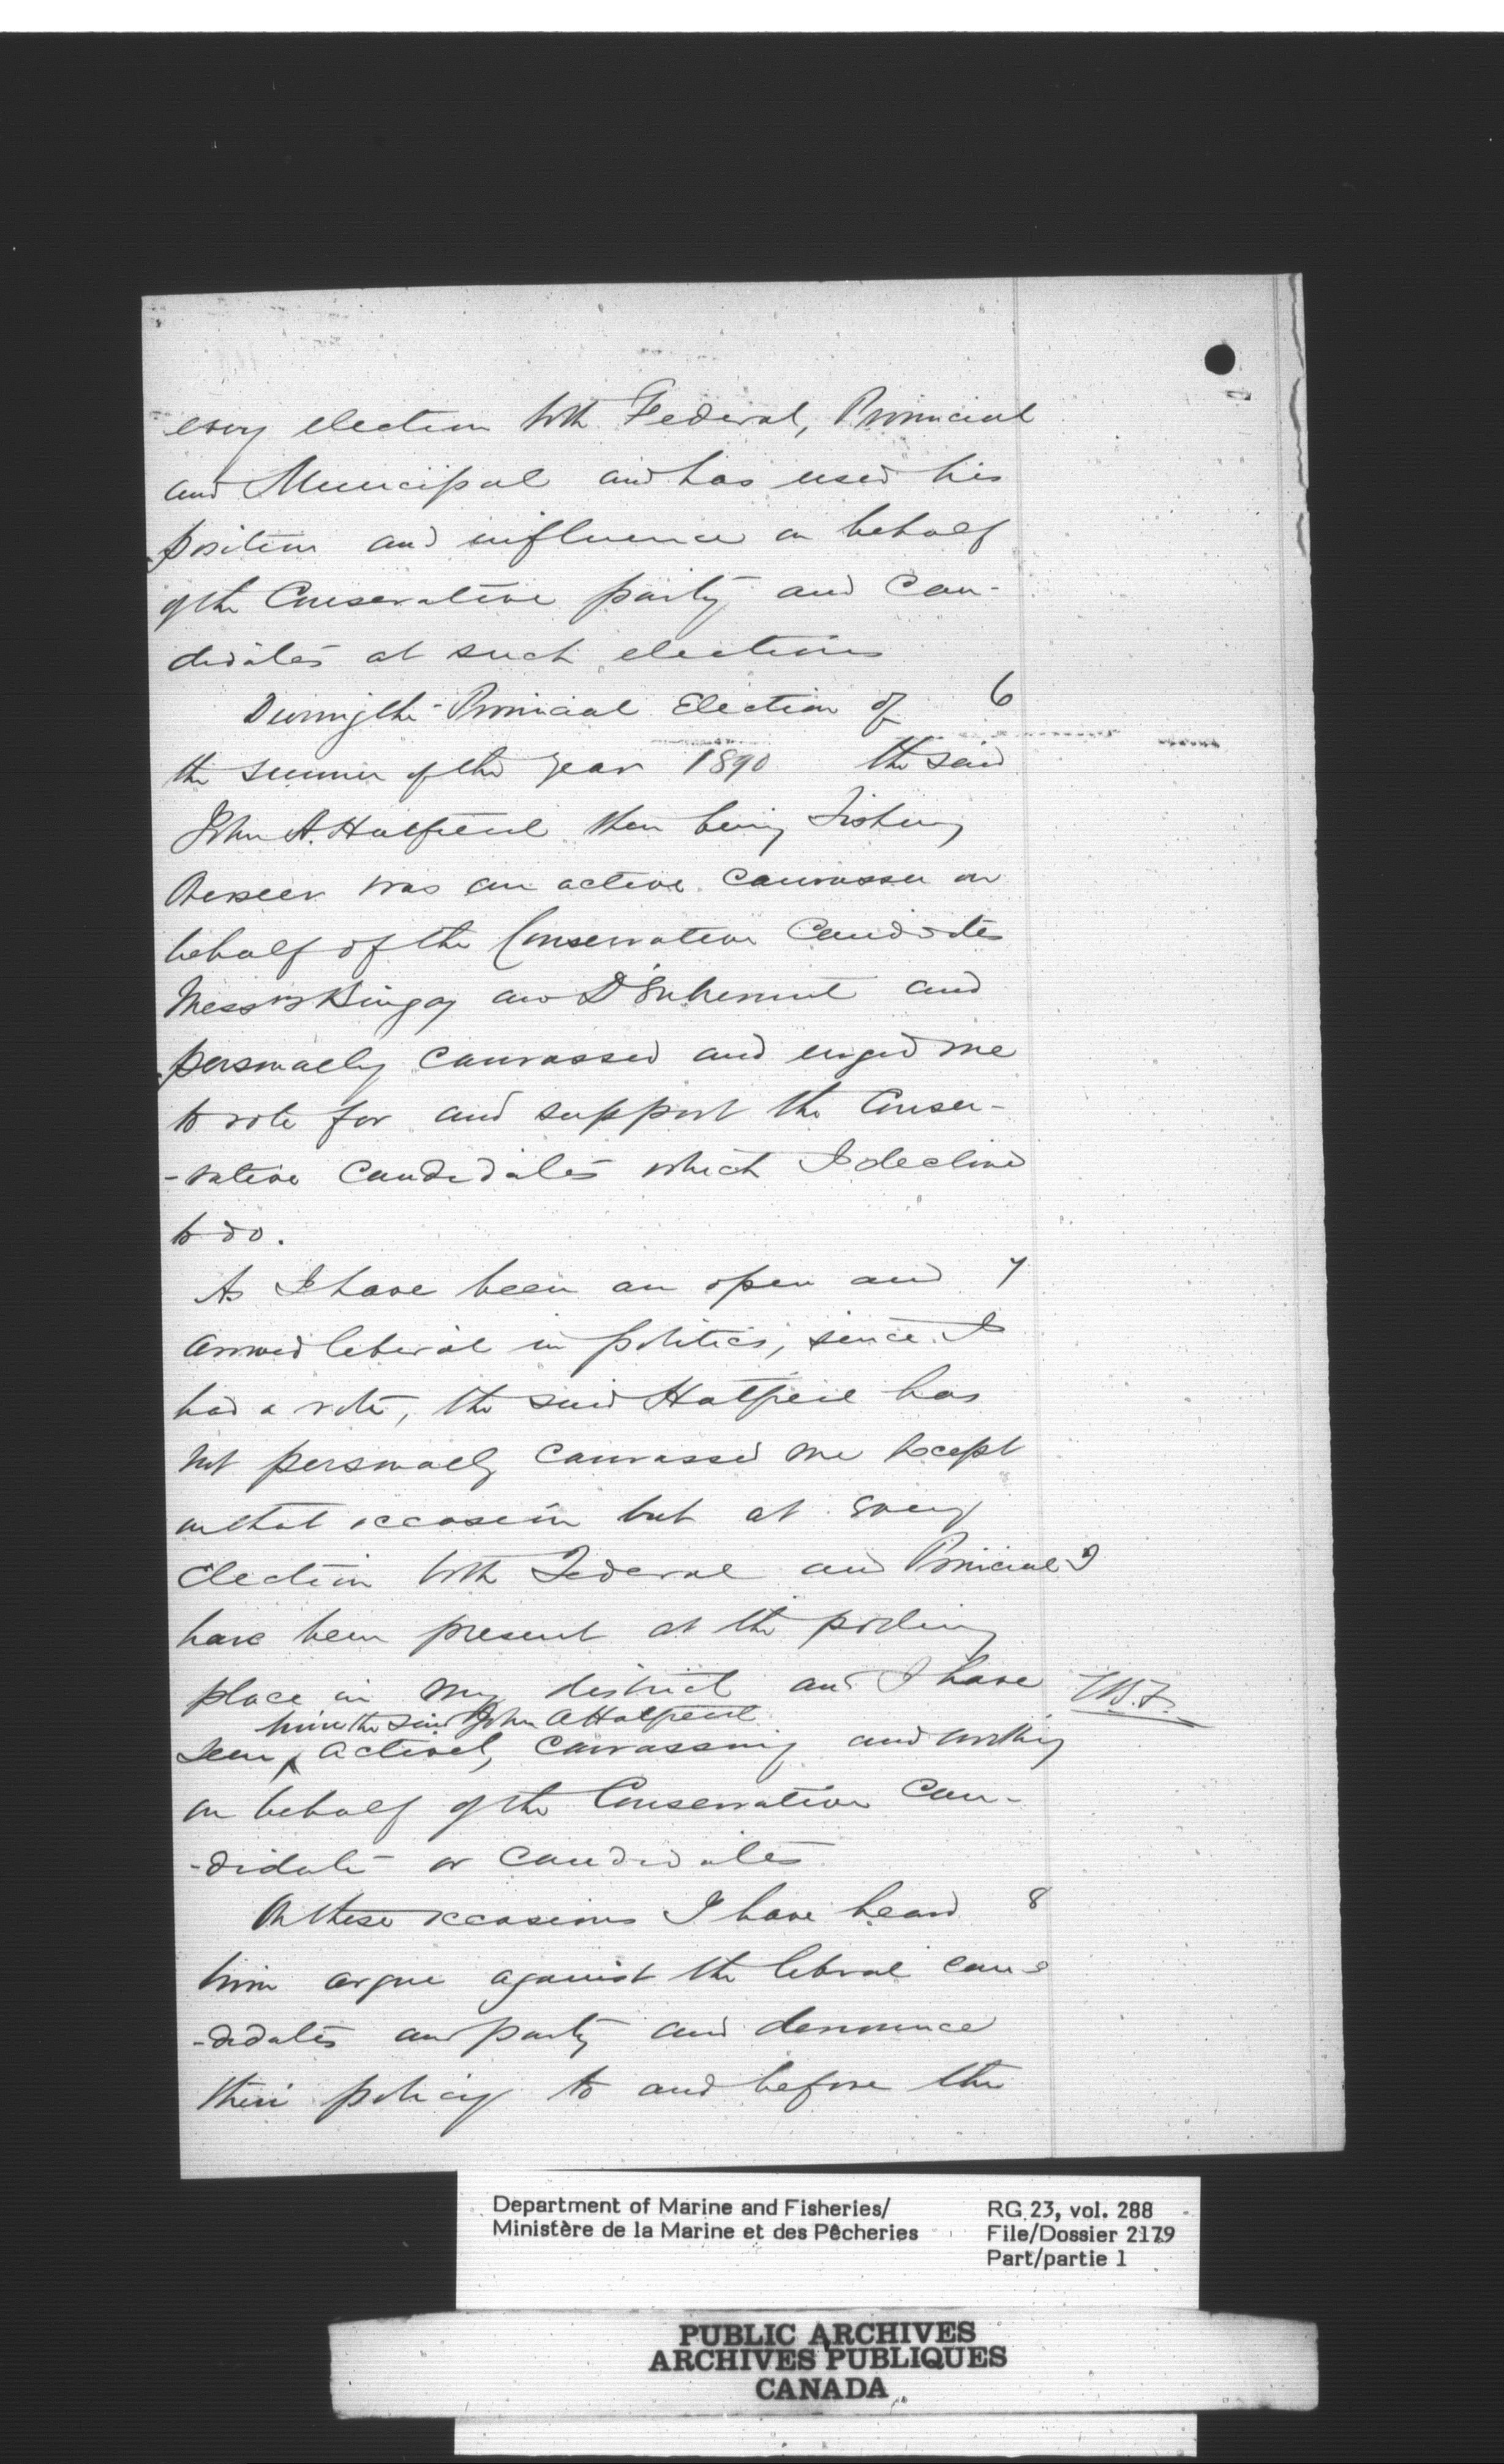 every election both Federal, Provincial
and Municipal and has used his
position and influence on behalf
of the Conservative party and Can-
didates at such elections
During the Provincial Election of 6
the summer of the year 1890 the said
John A. Hatfield then being Fishery
Overseer was an active canvasser on
behalf of the Conservative Candidates
Messrs Bingay and D'Entremont and
personally canvassed and urged me
to vote for and support the Conser-
-vative Candidates which I declined
to do.
As I have been an open and 7
avowed liberal in politics, since I
had a vote, the said Hatfield has
not personally canvassed me except
on that occasion but at every
Election both Federal and Provincial I
have been present at the polling
place in my district and I have
him the said John A Hatfield
seen ^ actively canvassing and working
on behalf of the Conservative Can-
-didate or candidates
On these occasions I have heard 8
him argue against the liberal can-
-didates and party and denounce
their policy to and before the
Department of Marine and Fisheries/
Ministère de la Marine et des Pêcheries
RG 23, vol. 288
File/Dossier 2179
Part/partie 1
PUBLIC ARCHIVES
ARCHIVES PUBLIQUES
CANADA